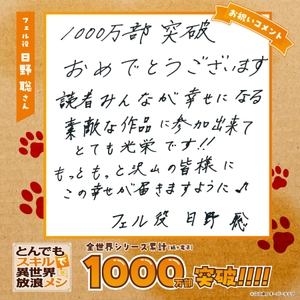 お祝いコメント
フェル役
日野 聡さん
1000万部 突破
おめでとうございます
読者みんなが幸せになる
素敵な作品に参加出来て
とても光栄です!!
もっともっと沢山の皆様に
この幸せが届きますように♪
フェル役 日野 聡
とんでも
スキルで
異世界
放浪メシ
全世界シリーズ累計(紙+電子)
1000万部突破!!!!